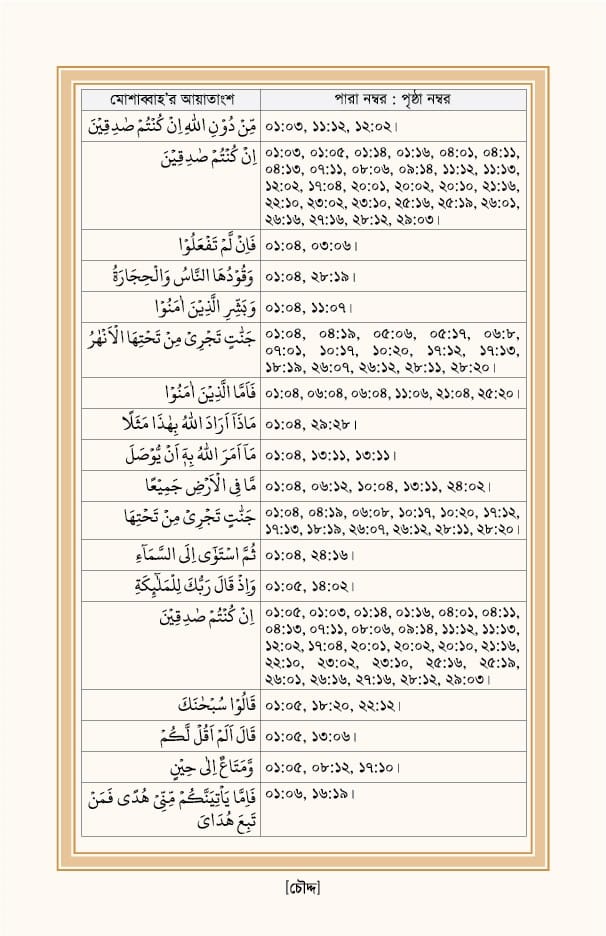 মোশাব্বাহ'র আয়াতাংশ পারা নম্বর : পৃষ্ঠা নম্বর
مِّنْ دُوْنِ اللهِ اِنْ كُنْتُمْ صٰدِقِيْنَ ০১:০৩, ১১:১২, ১২:০২।
اِنْ كُنْتُمْ صٰدِقِيْنَ ০১:০৩, ০১:০৫, ০১:১৪, ০১:১৬, ০৪:০১, ০৪:১১,
০৪:১৩, ০৭:১১, ০৮:০৬, ০৯:১৪, ১১:১২, ১১:১৩,
১২:০২, ১৭:০৪, ২০:০১, ২০:০২, ২০:১০, ২১:১৬,
২২:১০, ২৩:০২, ২৩:১০, ২৫:১৬, ২৫:১৯, ২৬:০১,
২৬:১৬, ২৭:১৬, ২৮:১২, ২৯:০৩।
فَاِنْ لَّمْ تَفْعَلُوْا ০১:০৪, ০৩:০৬।
وَقُوْدُهَا النَّاسُ وَالْحِجَارَةُ ০১:০৪, ২৮:১৯।
وَبَشِّرِ الَّذِيْنَ اٰمَنُوْا ০১:০৪, ১১:০৭।
جَنّٰتٍ تَجْرِيْ مِنْ تَحْتِهَا الْاَنْهٰرُ ০১:০৪, ০৪:১৯, ০৫:০৬, ০৫:১৭, ০৬:৮,
০৭:০১, ১০:১৭, ১০:২০, ১৭:১২, ১৭:১৩,
১৮:১৯, ২৬:০৭, ২৬:১২, ২৮:১১, ২৮:২০।
فَاَمَّا الَّذِيْنَ اٰمَنُوْا ০১:০৪, ০৬:০৪, ০৬:০৪, ১১:০৬, ২১:০৪, ২৫:২০।
مَاذَاۤ اَرَادَ اللهُ بِهٰذَا مَثَلًا ০১:০৪, ২৯:২৮।
مَاۤ اَمَرَ اللهُ بِهٖۤ اَنْ يُّوْصَلَ ০১:০৪, ১৩:১১, ১৩:১১।
مَّا فِى الْاَرْضِ جَمِيْعًا ০১:০৪, ০৬:১২, ১০:০৪, ১৩:১১, ২৪:০২।
جَنّٰتٍ تَجْرِيْ مِنْ تَحْتِهَا ০১:০৪, ০৪:১৯, ০৬:০৮, ১০:১৭, ১০:২০, ১৭:১২,
১৭:১৩, ১৮:১৯, ২৬:০৭, ২৬:১২, ২৮:১১, ২৮:২০।
ثُمَّ اسْتَوٰۤى اِلَى السَّمَآءِ ০১:০৪, ২৪:১৬।
وَاِذْ قَالَ رَبُّكَ لِلْمَلٰٓئِكَةِ ০১:০৫, ১৪:০২।
اِنْ كُنْتُمْ صٰدِقِيْنَ ০১:০৫, ০১:০৩, ০১:১৪, ০১:১৬, ০৪:০১, ০৪:১১,
০৪:১৩, ০৭:১১, ০৮:০৬, ০৯:১৪, ১১:১২, ১১:১৩,
১২:০২, ১৭:০৪, ২০:০১, ২০:০২, ২০:১০, ২১:১৬,
২২:১০, ২৩:০২, ২৩:১০, ২৫:১৬, ২৫:১৯,
২৬:০১, ২৬:১৬, ২৭:১৬, ২৮:১২, ২৯:০৩।
قَالُوْا سُبْحٰنَكَ ০১:০৫, ১৮:২০, ২২:১২।
قَالَ اَلَمْ اَقُلْ لَّكُمْ ০১:০৫, ১৩:০৬।
وَّمَتَاعٌ اِلٰى حِيْنٍ ০১:০৫, ০৮:১২, ১৭:১০।
فَاِمَّا يَاْتِيَنَّكُمْ مِّنِّيْ هُدًى فَمَنْ ০১:০৬, ১৬:১৯।
تَبِعَ هُدَايَ
[চৌদ্দ]